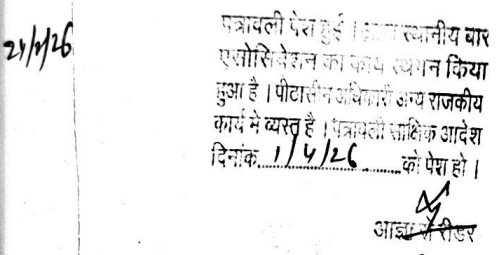 24/2/26
पत्रावली पेश हुई । स्थानीय बार
एसोसिवेशन का कार्य स्थगन किया
हुआ है । पीटासीन अधिकारी अन्य राजकीय
कार्य मे व्यस्त है । पत्रावली साक्षिक आदेश
दिनांक 1/4/26 को पेश हो ।
आज्ञा से रीडर